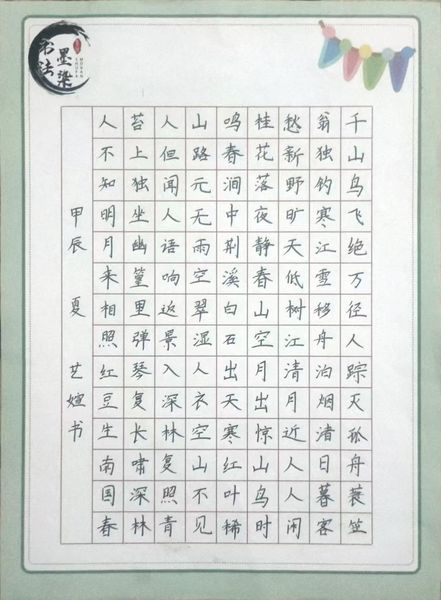 墨染
书法
千山鸟飞绝万径人踪灭孤舟蓑笠
翁独钓寒江雪移舟泊烟渚日暮客
愁新野旷天低树江清月近人人闲
桂花落夜静春山空月出惊山鸟时
鸣春涧中荆溪白石出天寒红叶稀
山路元无雨空翠湿人衣空山不见
人但闻人语响返景入深林复照青
苔上独坐幽篁里弹琴复长啸深林
人不知明月来相照红豆生南国春
甲辰 夏 艺书